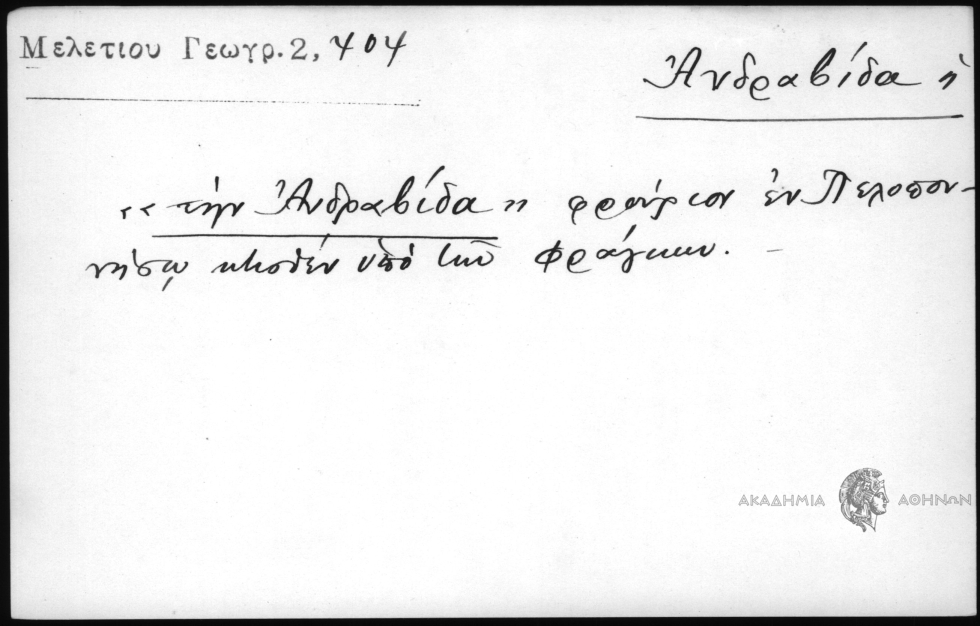 Μελετίου Γεωγρ. 2, 404
Ἀνδραβίδα ἡ
«τὴν Ἀνδραβίδα» φρούριον ἐν Πελοπον-
νήσῳ κτισθὲν ὑπὸ τῶν Φράγκων. –
ΑΚΑΔΗΜΙΑ ΑΘΗΝΩΝ